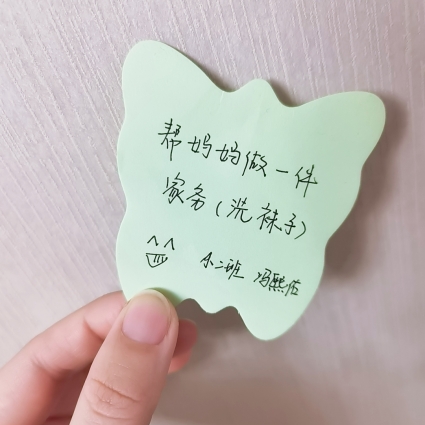 帮妈妈做一件
家务(洗袜子)
小二班 冯熙佑